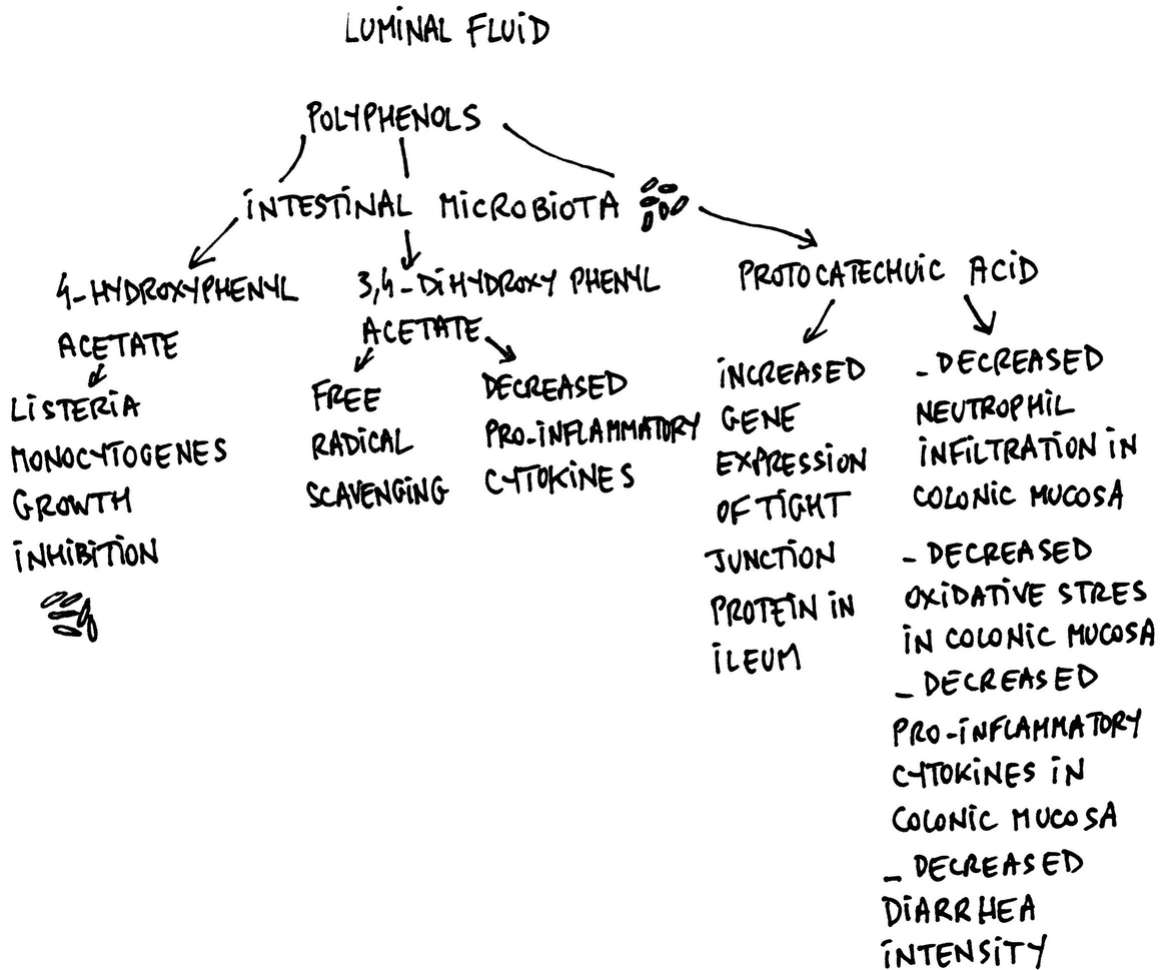 LUMINAL FLUID
POLYPHENOLS
INTESTINAL MICROBIOTA
4-HYDROXYPHENYL
ACETATE
LISTERIA
MONOCYTOGENES
GROWTH
INHIBITION
3,4-DIHYDROXY PHENYL
ACETATE
FREE
RADICAL
SCAVENGING
DECREASED
PRO-INFLAMMATORY
CYTOKINES
PROTOCATECHUIC ACID
INCREASED
GENE
EXPRESSION
OF TIGHT
JUNCTION
PROTEIN IN
ILEUM
- DECREASED
NEUTROPHIL
INFILTRATION IN
COLONIC MUCOSA
- DECREASED
OXIDATIVE STRES
IN COLONIC MUCOSA
- DECREASED
PRO-INFLAMMATORY
CYTOKINES IN
COLONIC MUCOSA
- DECREASED
DIARRHEA
INTENSITY